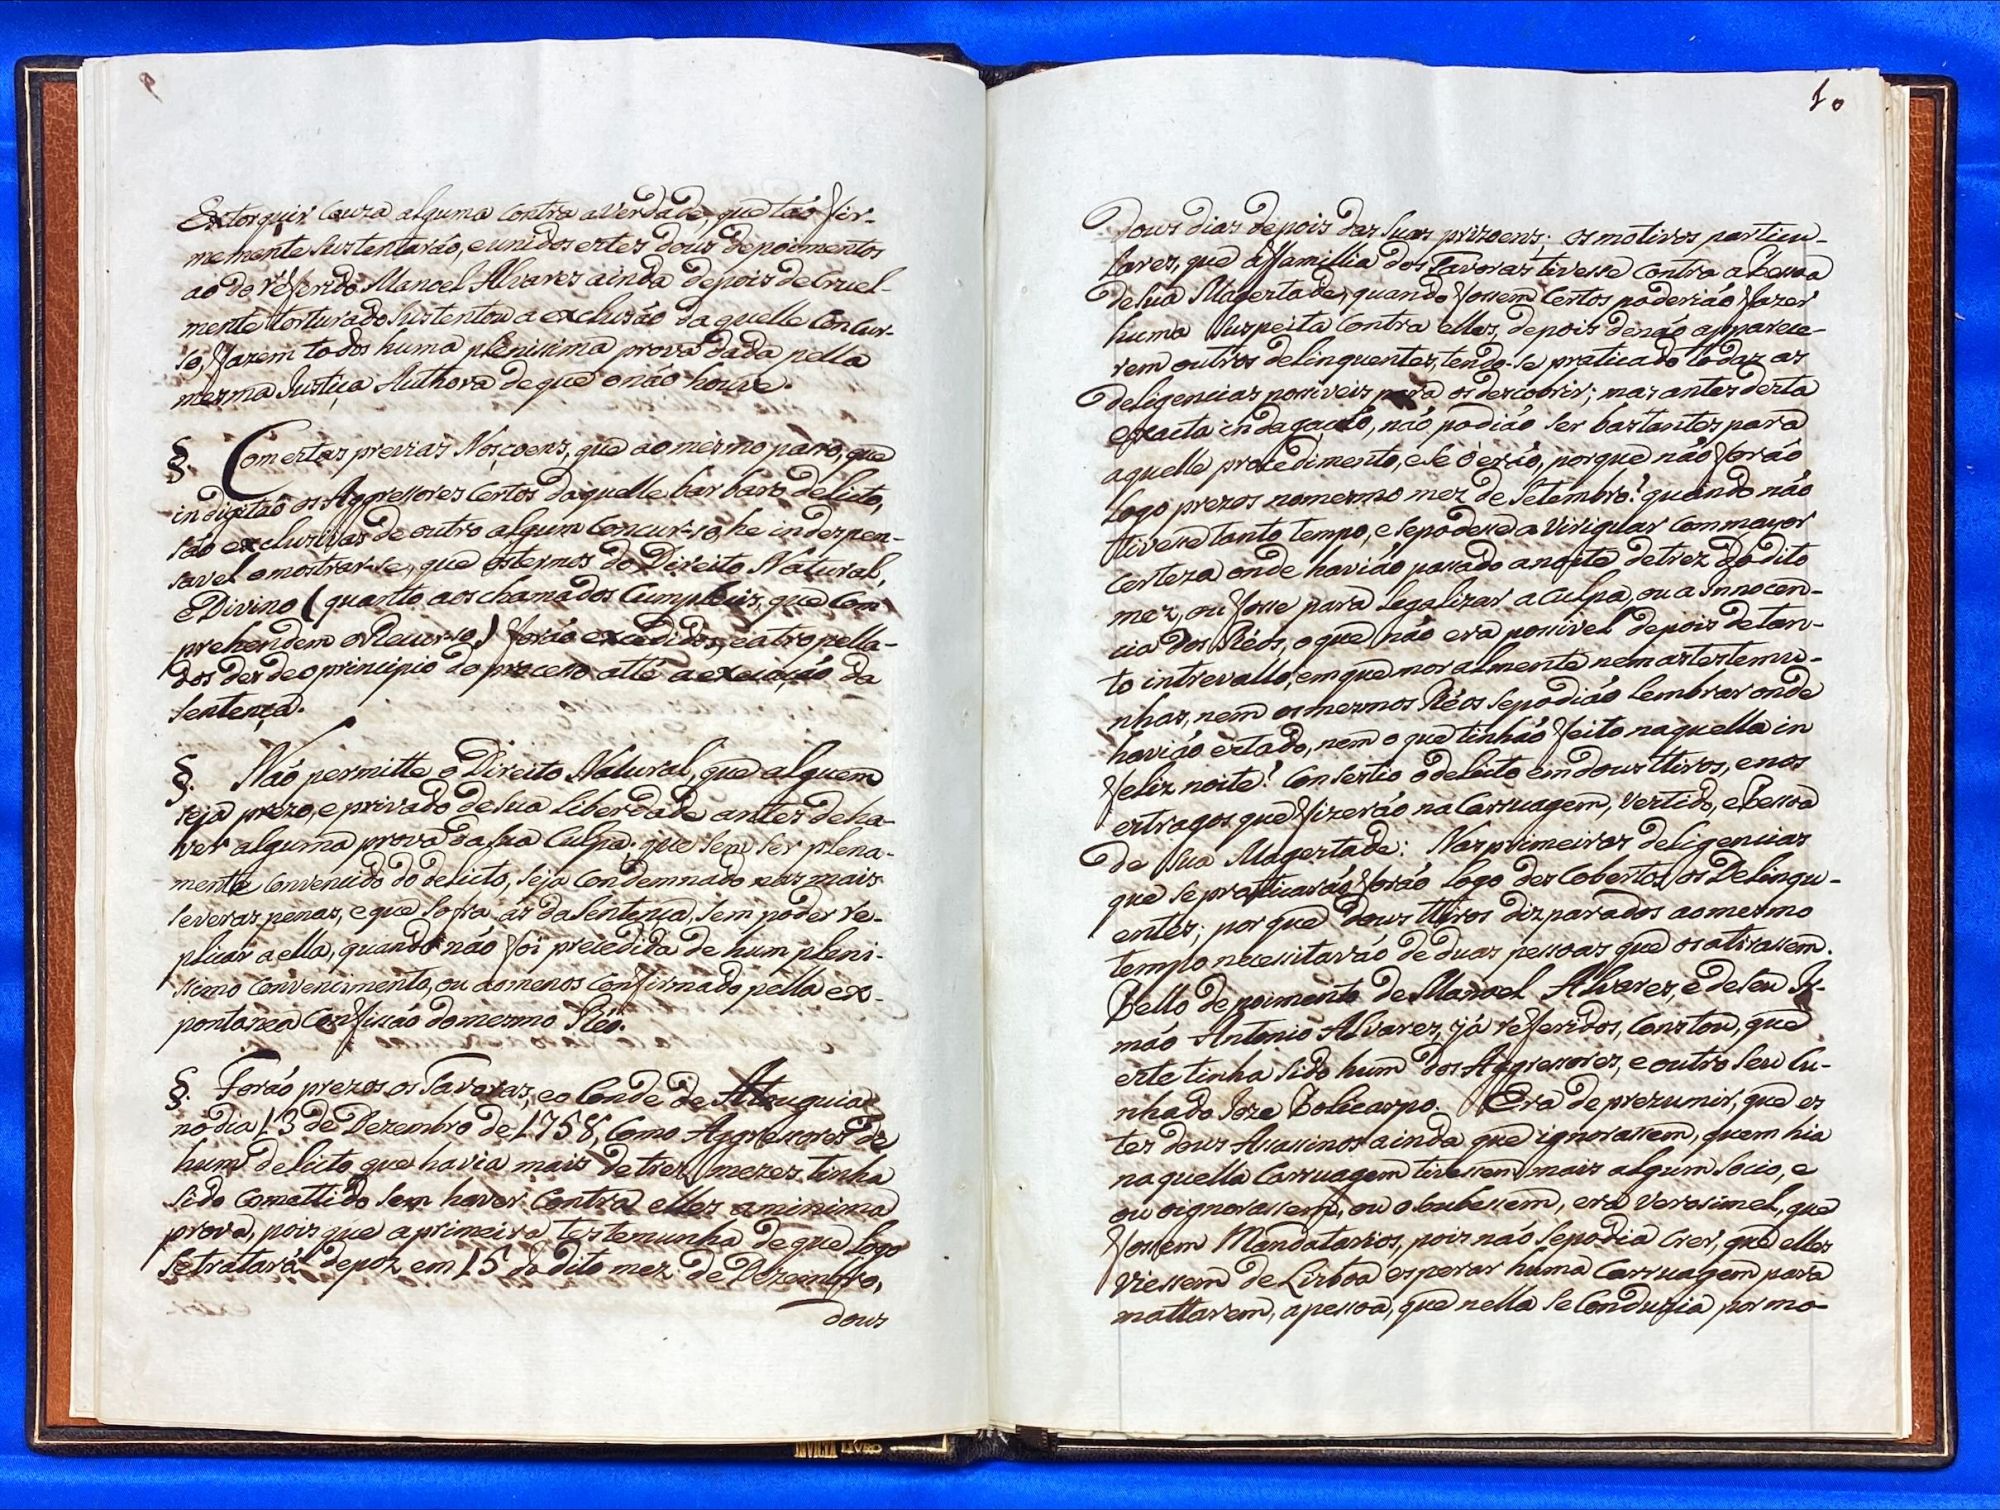 9
Extorquir Couza alguma Contra a Verdade, que taó fir-
memente Sustentaráo, e unidos estes dous depoimentos
ao do refferido Manoel Alvares ainda depois de Cruel-
mente torturado Sustentou a excluzáo daquelle Concur-
so, fazem todos huma plenissima prova dada pella
mesma Justiça Authora de que o náo houve.
§. Com estas previas Nosçoens, que ao mesmo passo, que
indigitaó os Aggressores Certos daquelle barbaro delicto,
sáo excluzivas de outro algum Concurso, he indespen-
savel o mostrar-se, que os termos do Direito Natural,
e Divino (quanto aos chamados Cumplices, que Com
prehendem o Recurso) foráo excedidos, e atropella-
dos desde o principio do processo atté a execuçáo da
Sentença.
§. Náo permitte o Direito Natural, que alguem
seja prezo, e privado de sua liberdade antes de ha-
ver alguma prova da sua Culpa; que sem ser plena-
mente Convencido do delicto, seja Condemnado nas mais
severas penas, e que sofra ás da Sentença, sem poder re-
plicar a ella, quando náo foi precedida de hum pleni-
ssimo Convencimento, ou ao menos Confirmado pella ex-
pontanea Confissáo do mesmo Réo.
§. Foráo prezos os Tavoras, e o Conde de Atouguia
no dia 13 de Dezembro de 1758, Como Aggressores de
hum delicto que havia mais de trez mezes tinha
sido Comettido sem haver Contra elles a minima
prova, pois que a primeira testemunha de que logo
se tratará depoz em 15 do dito mez de Dezembro,
dous
10
Dous dias depois das suas prizoens; os motivos particu-
lares, que a ffamillia dos Tavoras tivesse Contra a Pessoa
de Sua Magestade, quando fossem Certos poderiáo fazer
huma suspeita Contra elles, depois de náo apparece-
rem outros delinquentes, tendo-se praticado todas as
deligencias possiveis para os descobrir; mas antes desta
exacta indagaçáo, náo podiáo ser bastantes para
aquelle procedimento, e se ó eráo, porque náo foráo
logo prezos no mesmo mez de Setembro? quando náo
tivesse tanto tempo, e se podesse a Viriguar Com mayor
Certeza onde haviáo passado a noite de trez do dito
mez, ou fosse para legalizar a Culpa, ou a Innocen-
cia dos Réos, o que náo era possivel depois de tan-
to intrevallo, em que moralmente nem as testemu-
nhas, nem os mesmos Réos se podiáo lembrar onde
haviáo estado, nem o que tinháo feito naquella in
feliz noite? Consestio o delicto em dous ttiros, e nos
estragos que fizeráo na Carruagem, vestido, e Pessoa
de Sua Magestade: Nas primeiras deligencias
que se praticaráo foráo logo des Cobertos os Delinqu-
entes; porque dous ttiros dizparados ao mesmo
tempo necessitaváo de duas pessoas que os atirassem.
Pello depoimento de Manoel Alvares, e de seu Ir-
máo Antonio Alvares, já refferidos, Constou, que
este tinha sido hum dos Aggressores, e outro seu Cu-
nhado Joze Policarpo. Era de prezumir, que es
tes dous Assassinos ainda que ignorassem, quem hia
naquella Carruagem tivessem mais algum socio, e
ou o ignorassem, ou o Soubessem, era verosimel, que
fossem Mandatarios, pois náo se podia Crer, que elles
viessem de Lisboa esperar huma Carruagem para
mattarem, a pessoa, que nella se Conduzia por mo-